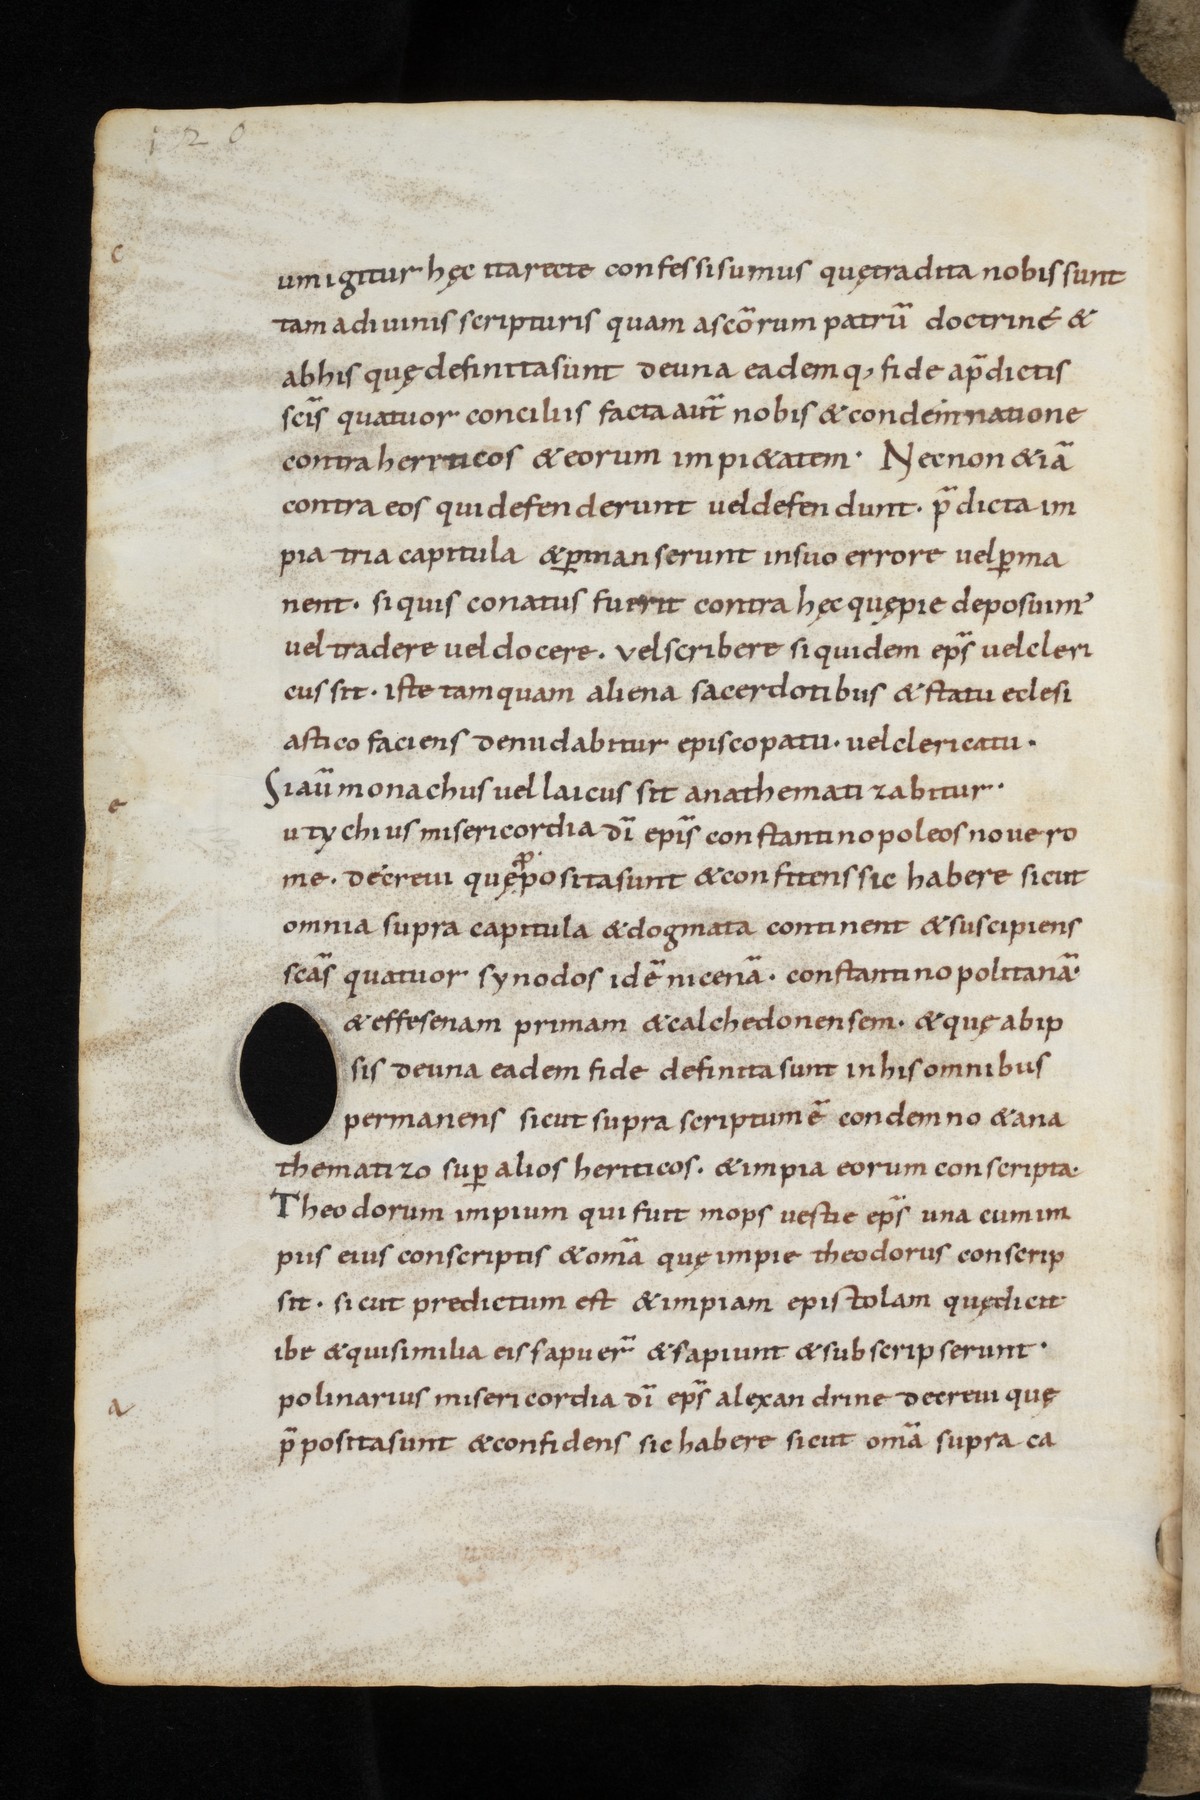 120
c
umigitur hęc itarecte confessisumus quętradita nobis sunt
tam adiuinis scripturis quam ascōrum patrū doctrinė &
abhis quędefinitasunt deuna eademq, fide ap̄dictis
scīs quatuor conciliis facta aut̄ nobis & condemnatione
contra herrticos & eorum impi&atem· Necnon & iā
contra eos qui defenderunt uel defendunt· p̄dicta im
pia tria capitula & ꝑmanserunt insuo errore uel ꝑma
nent· siquis conatus fuerit contra hęc quępie deposuim᾽
uel tradere uel docere· vel scribere siquidem ep̄s uel cleri
cus sit· iste tamquam aliena sacerdotibus & statu eclesi
astico faciens denudabitur episcopatu· uel clericatu·
Siaū monachus uel laicus sit anathematizabitur·
e
utychius misericordia dī epīs constantinopoleos noue ro
me· decreui quę p̄positasunt & confitens sic habere sicut
omnia supra capitula & dogmata continent & suscipiens
scās quatuor synodos idē nicenā· constantinopolitanā·
& effesenam primam & calchedonensem· & quę abip
sis deuna eadem fide definita sunt inhis omnibus
permanens sicut supra scriptum ē condemno & ana
thematizo suꝑ alios heriticos· & impia eorum conscripta·
Theodorum impium qui fuit mops vestie ep̄s una cum im
piis eius conscriptis & omā quę impie theodorus conscrip
sit· sicut predictum est & impiam epistolam quędicit
ibe & quisimilia eis sapuer̄ & sapiunt & subscripserunt·
a
polinarius misericordia dī ep̄s alexandrine decreui quę
p̄positasunt & confidens sic habere sicut omā supra ca